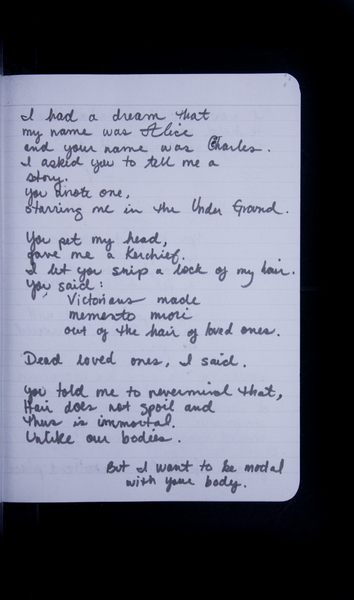 I had a dream that
my name was Alice
and your name was Charles.
I asked you to tell me a
story.
You wrote one,
starring me in the Under Ground.
You pet my head,
gave me a kerchief.
I let you snip a lock of my hair.
You said:
Victorians made
memento mori
out of the hair of loved ones.
Dead loved ones, I said.
You told me to nevermind that,
Hair does not spoil and
thus is immortal.
Unlike our bodies.
But I want to be modal
with your body.